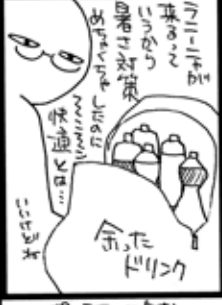 ラニーニャが
来るって
いうから
暑さ対策
めちゃくちゃ
したのに
快適とは…
いいけどさ
余った
ドリンク